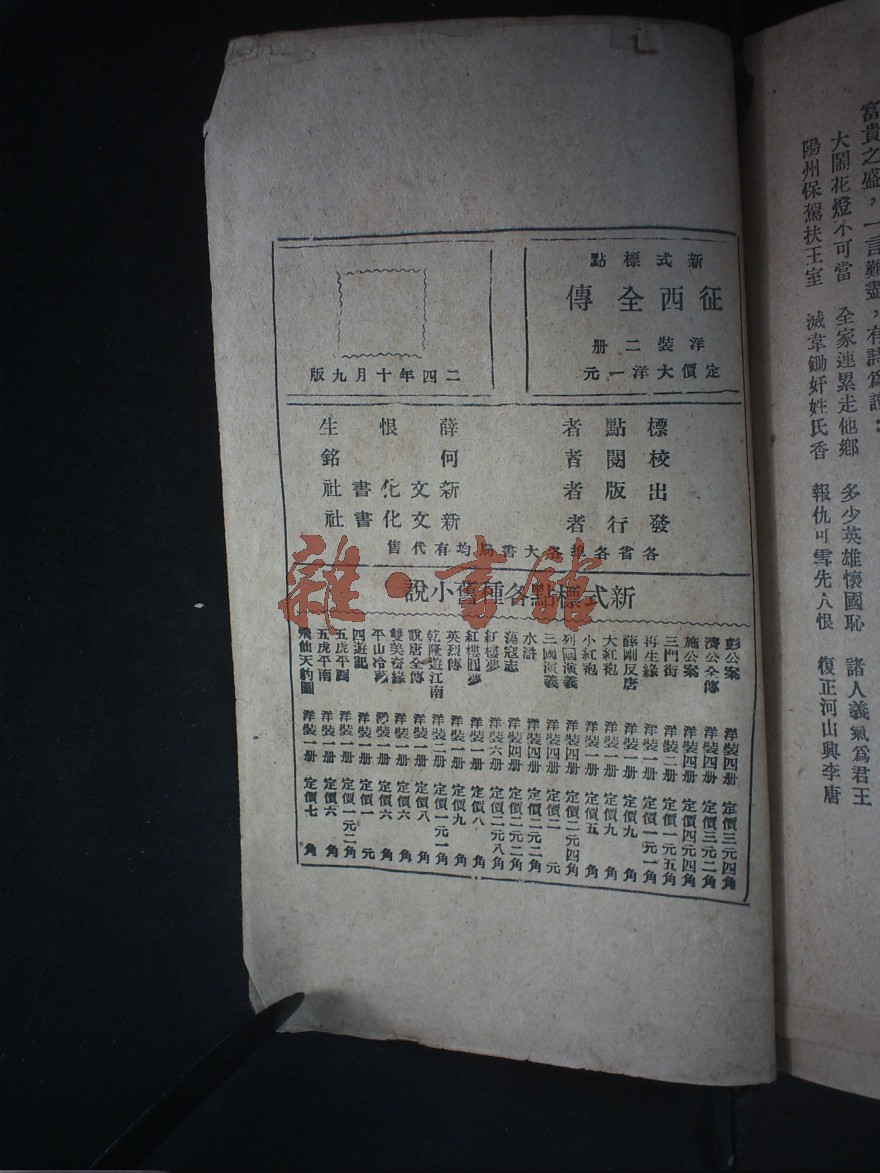 富貴之盛，一言難盡，有詩爲證：
大鬧花燈不可當　全家連累走他鄉　多少英雄懷國恥　諸人義氣爲君王
陽州保駕扶王室　滅韋鋤奸姓氏香　報仇可雪先人恨　復正河山興李唐
新式標點
征西全傳
洋裝二册
定價大洋一元
二四年十月九版
標點者　薛恨生
校閱者　何銘
出版者　新文化書社
發行者　新文化書社
各省各埠各大書局均有代售
新式標點各種舊小說
彭公案　洋裝四册　定價三元四角
濟公全傳　洋裝四册　定價三元二角
施公案　洋裝四册　定價四元四角
三門街　洋裝二册　定價一元五角
再生緣　洋裝一册　定價一元一角
薛剛反唐　洋裝一册　定價九角
大紅袍　洋裝一册　定價九角
小紅袍　洋裝一册　定價五角
列國演義　洋裝四册　定價二元四角
三國演義　洋裝四册　定價二元
水滸　洋裝四册　定價二元二角
蕩寇志　洋裝四册　定價二元二角
紅樓夢　洋裝六册　定價二元八角
紅樓圓夢　洋裝一册　定價八角
英烈傳　洋裝一册　定價九角
乾隆遊江南　洋裝二册　定價一元一角
說唐全傳　洋裝一册　定價八角
雙美奇緣　洋裝一册　定價六角
平山冷燕　洋裝一册　定價六角
四遊記　洋裝一册　定價一元
五虎平西　洋裝一册　定價一元二角
五虎平南　洋裝一册　定價六角
飛仙天豹圖　洋裝一册　定價七角
雜·書館